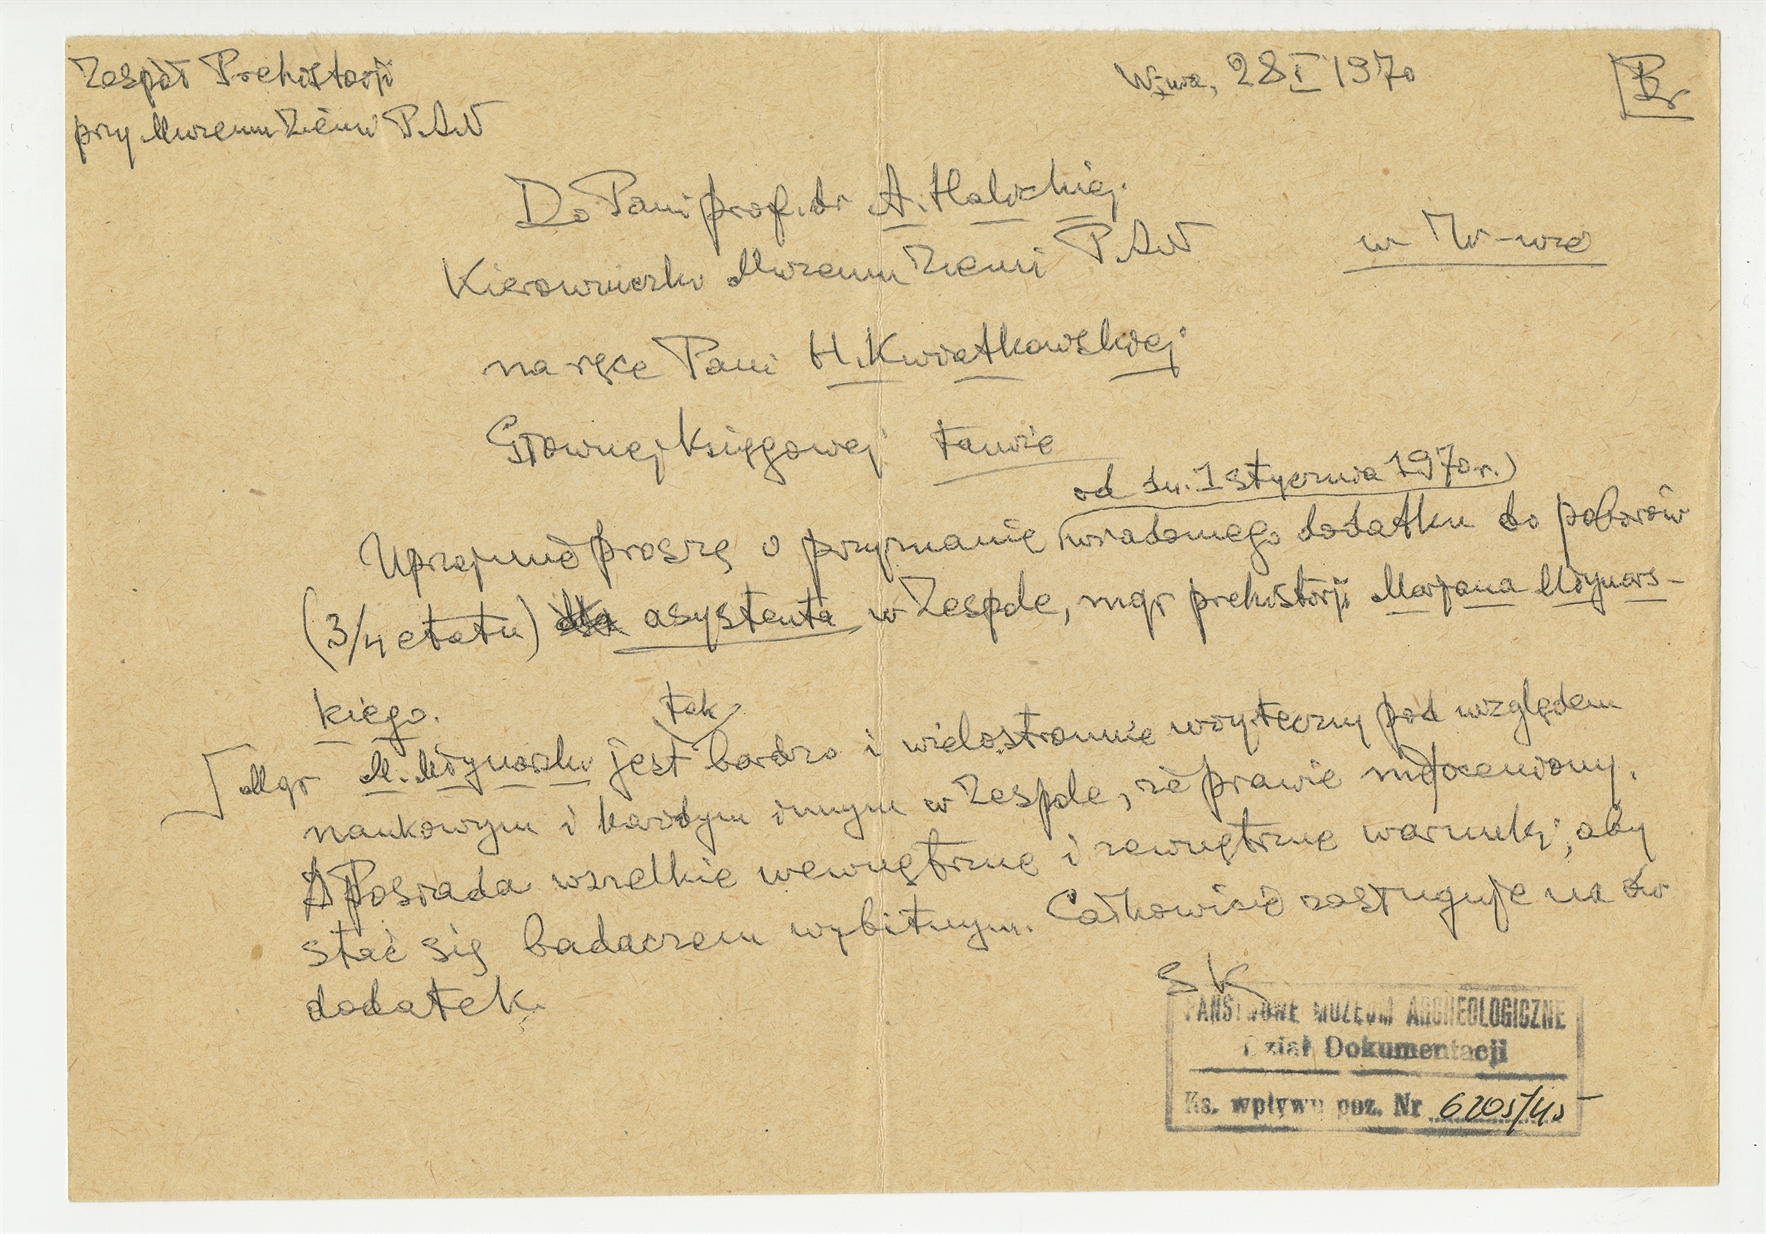 Zespół Prehistorji
przy Muzeum Ziemi P.A.N
W-wa, 28 I 1970
Br
Do Pani prof. dr A. Halickiej
Kierowniczki Muzeum Ziemi P.A.N
w W-wie
na ręce Pani H. Kwiatkowskiej
Głównej Księgowej tamże
od dn. 1 stycznia 1970 r.)
Uprzejmie proszę o przyznanie wiadomego dodatku do poborów
(3/4 etatu) dla asystenta w Zespole, mgr prehistorji Marjana Młynars-
kiego.
tak
Mgr M. Młynarski jest bardzo i wielostronnie użyteczny pod względem
naukowym i każdym innym w Zespole, że prawie nieoceniony.
Posiada wszelkie wewnętrzne i zewnętrzne warunki, aby
stać się badaczem wybitnym. Całkowicie zasługuje na ów
dodatek.
SK
PAŃSTWOWE MUZEUM ARCHEOLOGICZNE
Dział Dokumentacji
Ks. wpływu poz. Nr 6205/45